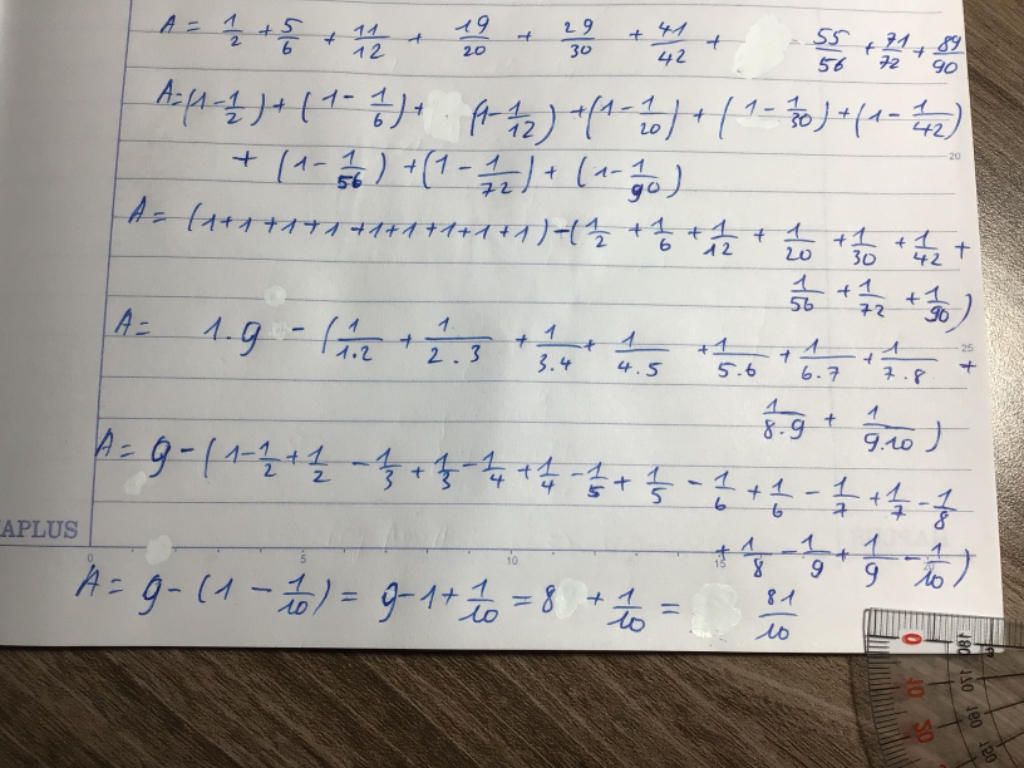 A = 1/2 + 5/6 + 11/12 + 19/20 + 29/30 + 41/42 + 55/56 + 71/72 + 89/90
A = (1 - 1/2) + (1 - 1/6) + (1 - 1/12) + (1 - 1/20) + (1 - 1/30) + (1 - 1/42)
+ (1 - 1/56) + (1 - 1/72) + (1 - 1/90)
20
A = (1+1+1+1+1+1+1+1+1) - (1/2 + 1/6 + 1/12 + 1/20 + 1/30 + 1/42 +
1/56 + 1/72 + 1/90)
A = 1.9 - (1/1.2 + 1/2.3 + 1/3.4 + 1/4.5 + 1/5.6 + 1/6.7 + 1/7.8 +
25
1/8.9 + 1/9.10)
A = 9 - (1 - 1/2 + 1/2 - 1/3 + 1/3 - 1/4 + 1/4 - 1/5 + 1/5 - 1/6 + 1/6 - 1/7 + 1/7 - 1/8
+ 1/8 - 1/9 + 1/9 - 1/10)
APLUS
0 5 10 15 20
A = 9 - (1 - 1/10) = 9 - 1 + 1/10 = 8 + 1/10 = 81/10
0 180
10 170
20 160